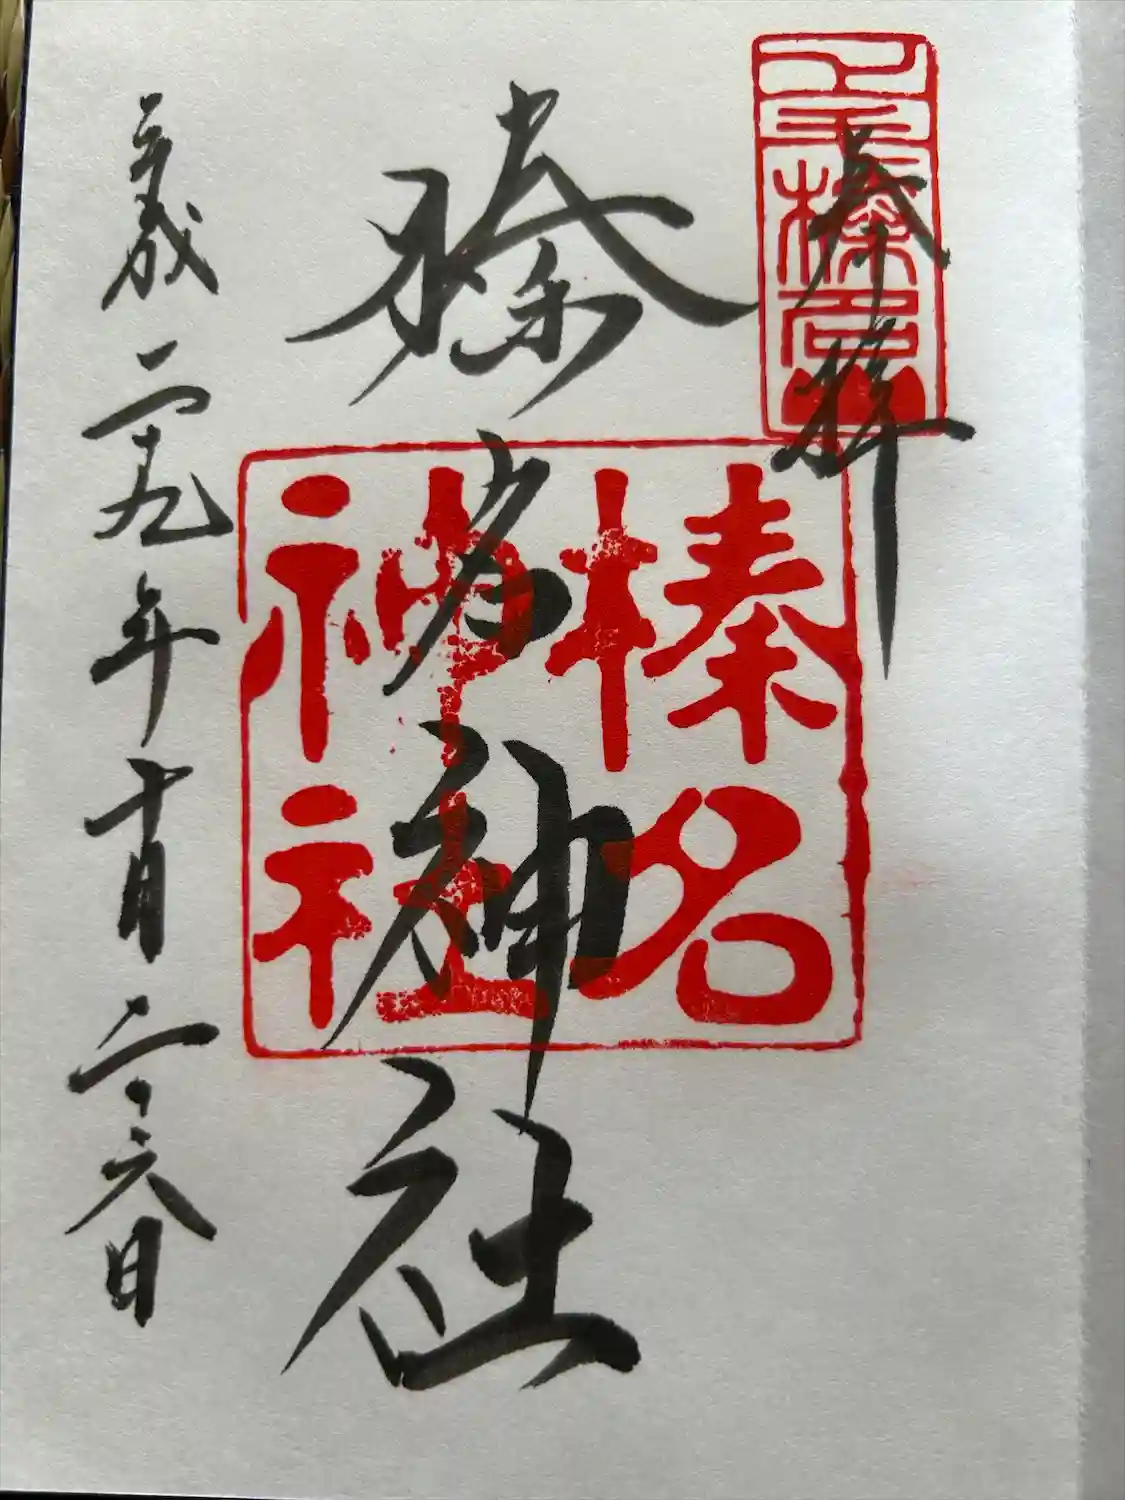 奉拝
上毛榛名山
榛名神社
榛名
神社
平成二十九年十月二十六日